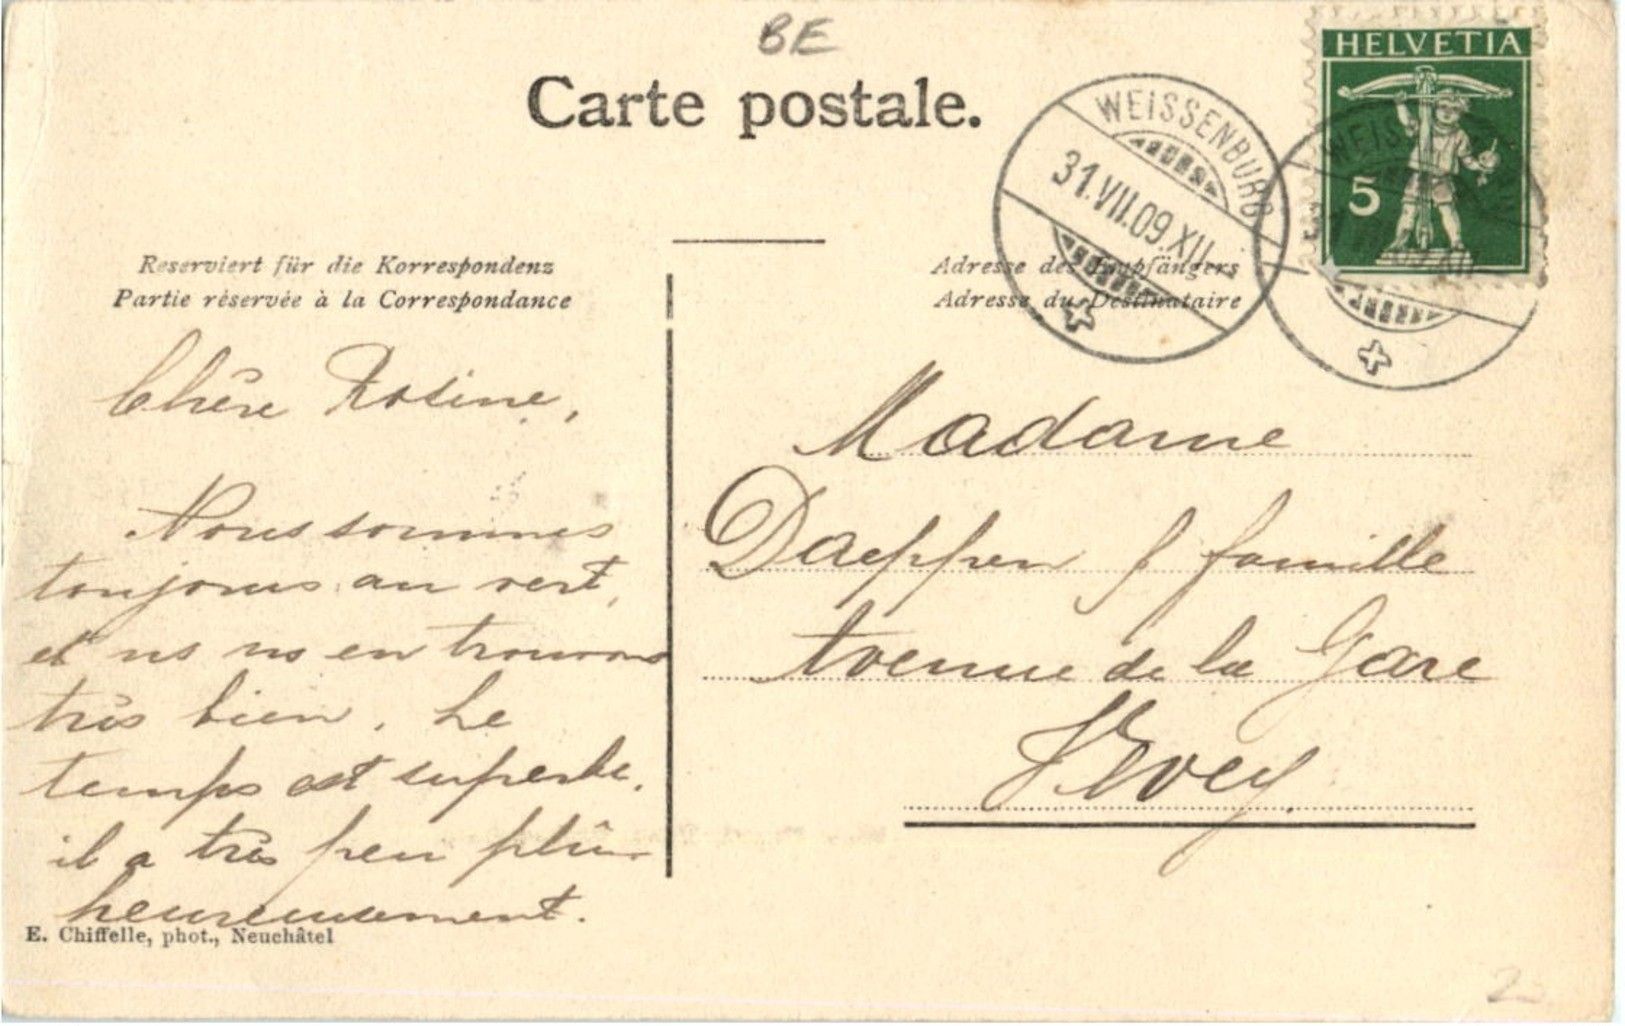 BE
Carte postale.
HELVETIA
5
WEISSENBURG
31.VII.09.XII
WEIS
Reserviert für die Korrespondenz
Partie réservée à la Correspondance
Adresse des Empfängers
Adresse du Destinataire
Chère Rosine,
Nous sommes
toujours au vert,
et ns ns en trouvons
très bien. Le
temps est superbe,
il a très peu plû
heureusement.
E. Chiffelle, phot., Neuchâtel
Madame
Daeppen famille
Avenue de la Gare
Vevey.
2